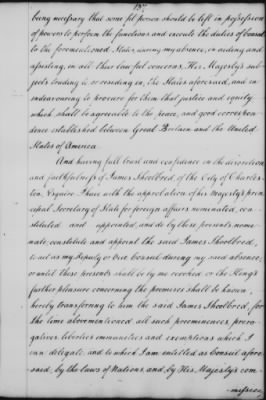 being necessary that some fit person should be left in possession
of powers to perform the functions and execute the duties of Consul
to the forementioned States, during my absence, in aiding and
assisting, in all their lawful concerns, His Majesty's sub-
jects trading to or residing in, the States aforesaid, and in
endeavouring to procure for them that justice and equity
which shall be agreeable to the peace, and good correspon-
dence established between Great Britain and the United
States of America.
And having full trust and confidence in the discretion
and faithfulness of James Shoolbred of the City of Charles-
ton, Esquire I have with the approbation of his Majesty's prin-
cipal Secretary of State for foreign affairs nominated, con-
stituted and appointed, and do by these presents nomi-
nate, constitute and appoint the said James Shoolbred,
to act as my Deputy or Vice Consul during my said absence,
or until these presents shall be by me revoked or the King's
further pleasure concerning the premises shall be known,
hereby transferring to him the said James Shoolbred, for
the time abovementioned all such preeminences, prero-
gatives liberties immunities and exemptions which I
can delegate, and to which I am entitled as Consul afore-
said, by the laws of Nations, and by His Majesty's com-
mission